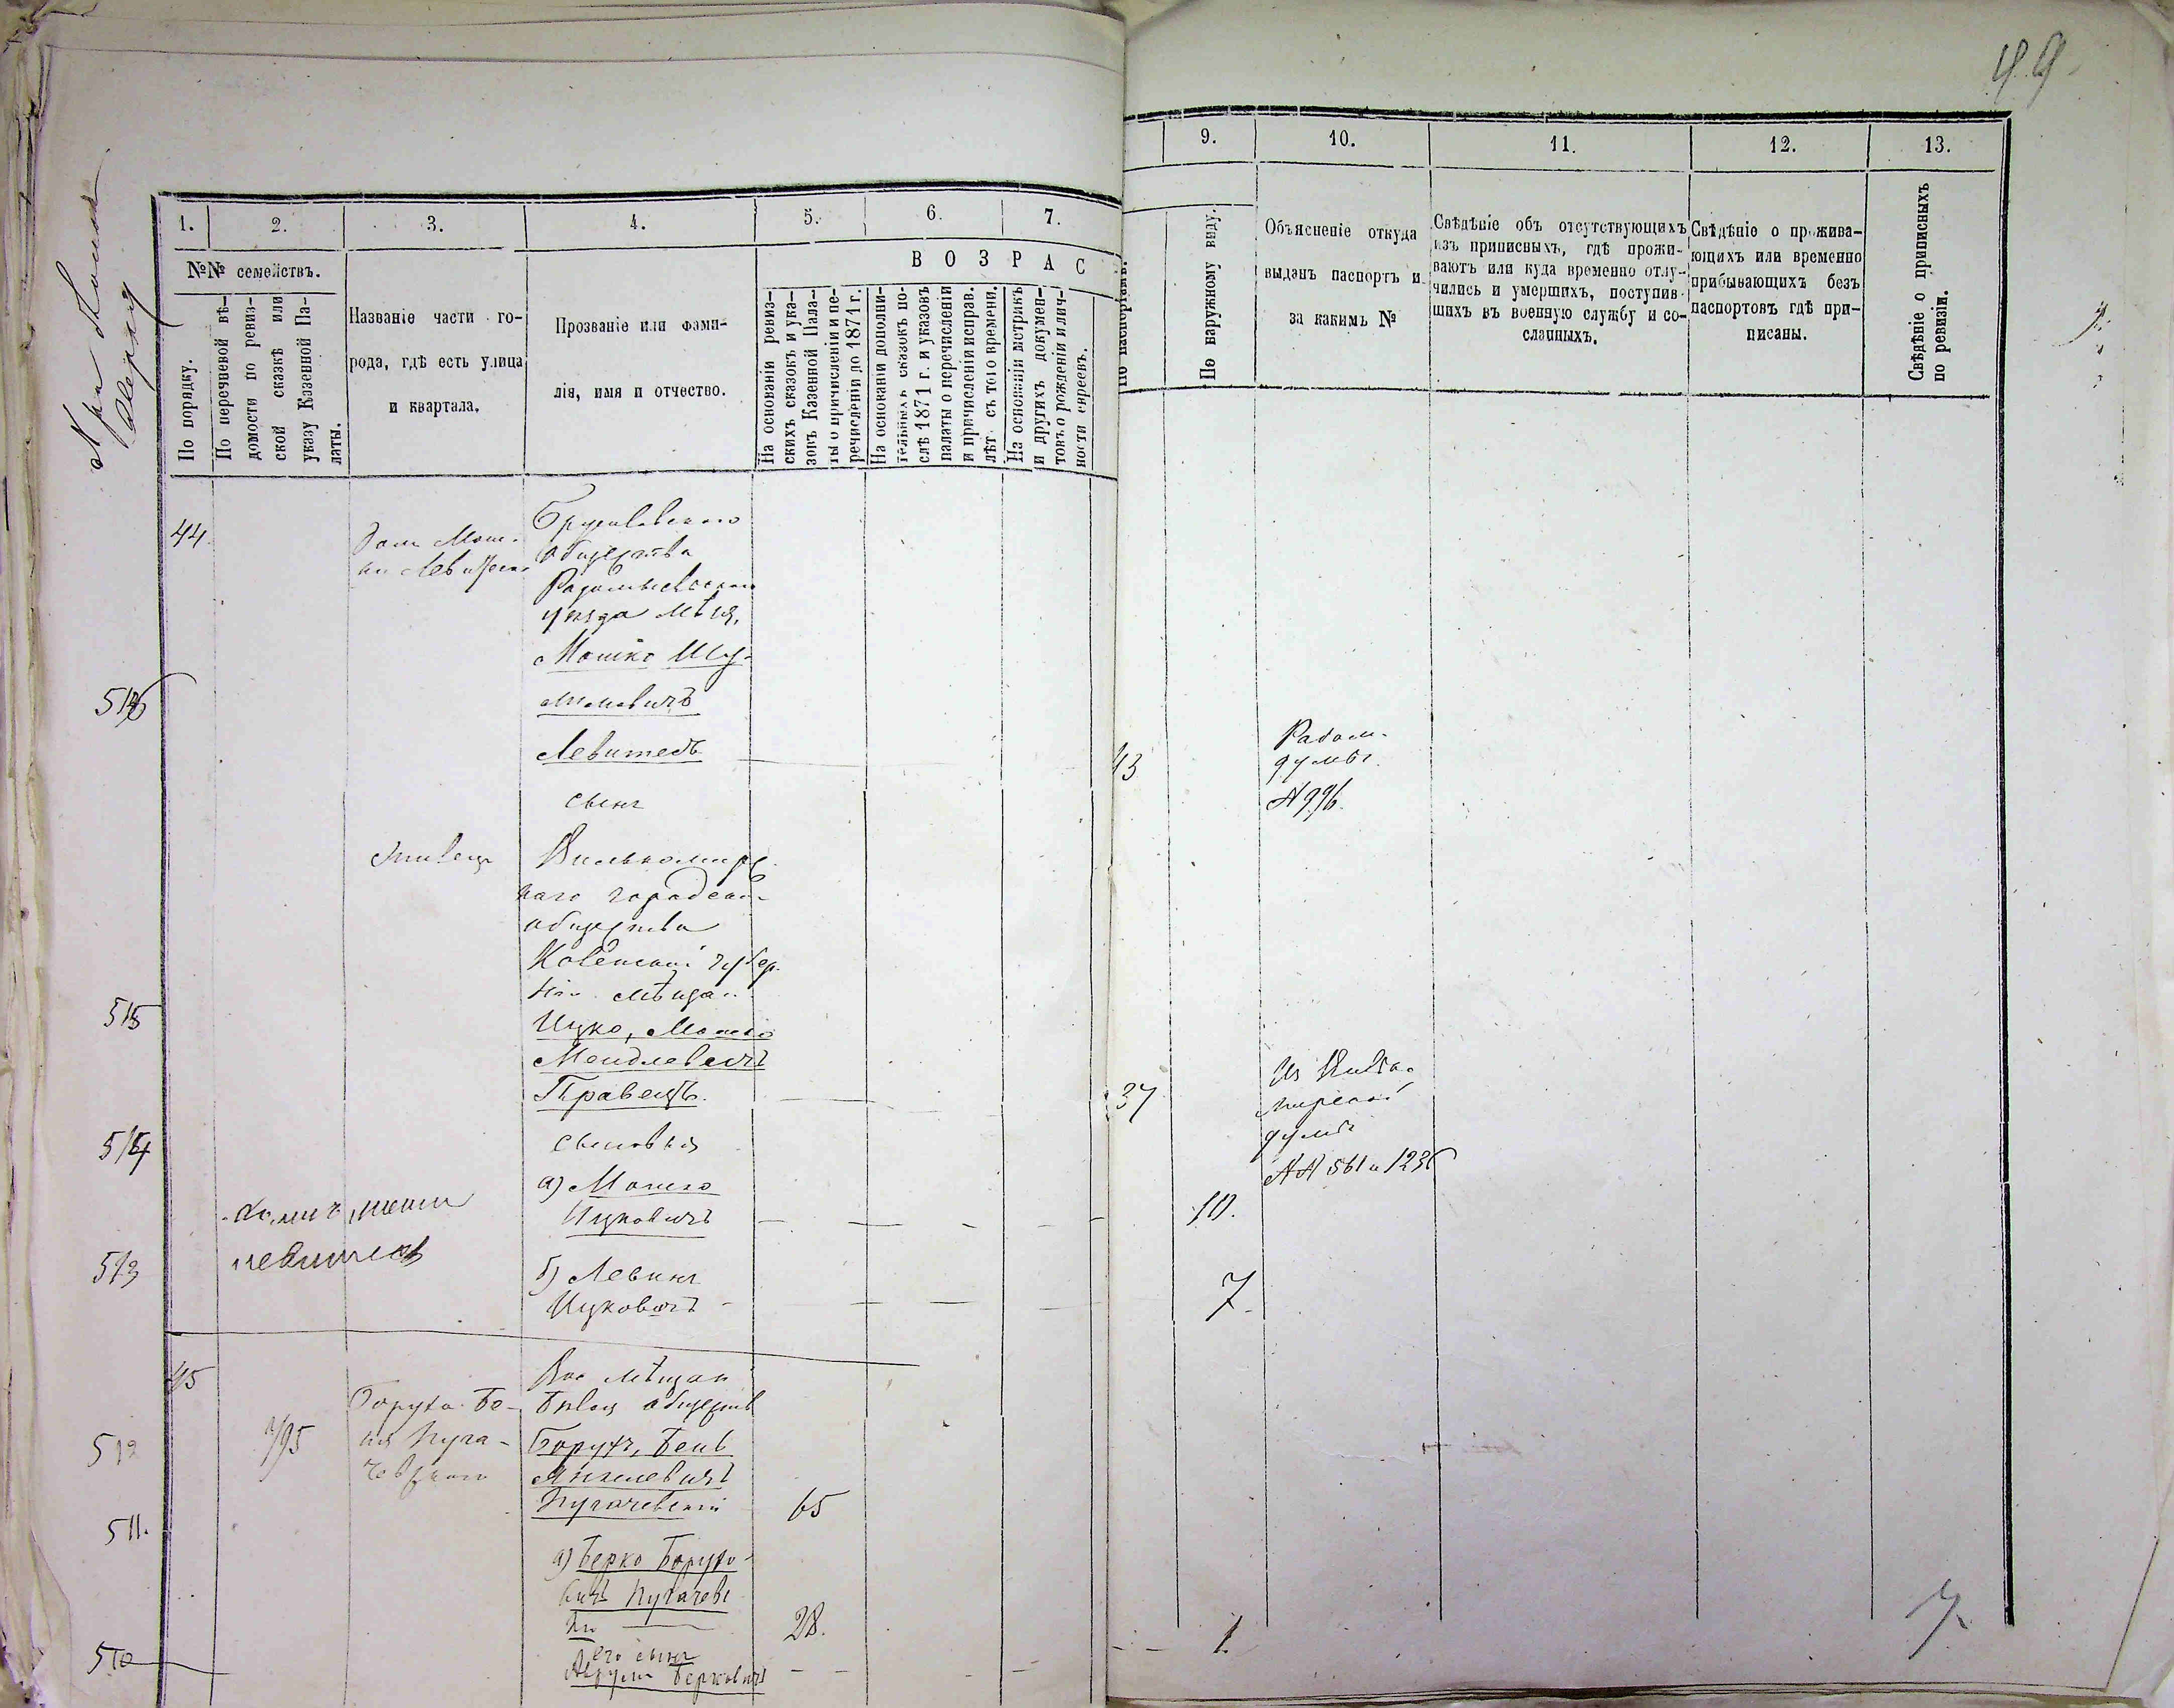 49
1. 2. 3. 4. 5. 6. 7.
9. 10. 11. 12. 13.
№№ семействъ.
ВОЗРАС
По порядку.
По перечневой вѣ-
домости по ревиз-
ской сказкѣ или
указу Казенной Па-
латы.
Названіе части го-
рода, гдѣ есть улица
и квартала.
Прозваніе или фами-
лія, имя и отчество.
На основаніи ревиз-
скихъ сказокъ и ука-
зовъ Казенной Пала-
ты о причисленіи и пе-
речисленіи до 1871 г.
На основаніи дополни-
тельныхъ сказокъ по-
слѣ 1871 г. и указовъ
палаты о перечисленіи
и причисленіи исправ.
лѣт. съ того времени.
На основаніи метрикъ
и другихъ докумен-
товъ о рожденіи и лич-
ности евреевъ.
По наружному виду.
Объясненіе откуда
выданъ паспортъ и
за какимъ №
Свѣдѣніе объ отсутствующихъ
изъ приписныхъ, гдѣ прожи-
ваютъ или куда временно отлу-
чились и умершихъ, поступив-
шихъ въ военную службу и со-
сланныхъ.
Свѣдѣніе о прожива-
ющихъ или временно
прибывающихъ безъ
паспортовъ гдѣ при-
писаны.
Свѣдѣніе о приписныхъ
по ревизіи.
44
домъ Мош-
ки
общества
Радомысльскаго
уѣзда мѣщ.
Мошко Шу-
лимовичъ
Левитесъ
43
Радом.
думы
№ 996.
сынъ
Вилькомирс
каго городскаго
общества
Ковенской губер.
ніи мѣщан.
515
Ицко, Мошко
Менделевичъ
Кравецъ.
37
Из Вилько
мирской
думы
№№ 561 и 1236
514
сыновья
а) Мошко
Ицковичъ
10.
513
левитесъ
б) Левикъ
Ицковичъ
7.
45
Вас мѣщан
общества
Боруха Бе-
ня Пуга-
чевскаго
512
795
Борухъ, Бень
Янкелевичъ
Пугачевскій
65
511.
а) Берко Борухо-
вичъ Пугачевс
кій
28.
510
его сынъ
Берковичъ
1.
7.